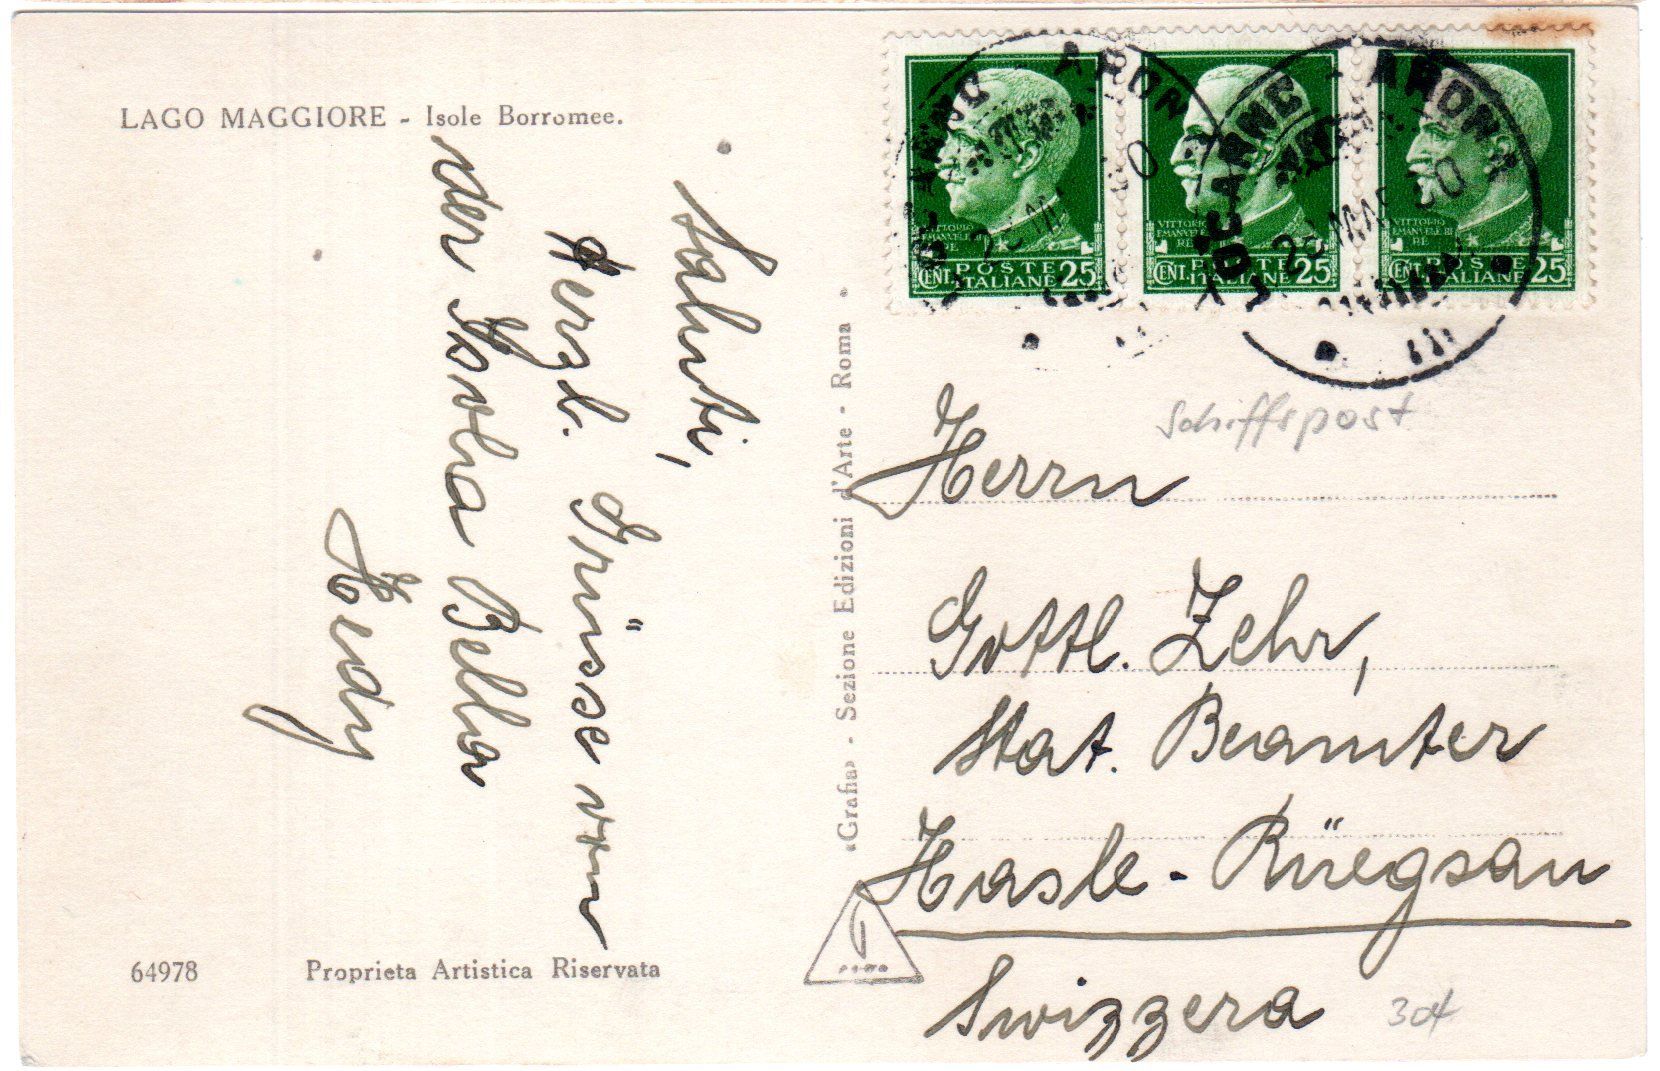 LAGO MAGGIORE - Isole Borromee.
Saluti,
Herzl. Grüsse von
der Isola Bella
Hedy
64978
Proprieta Artistica Riservata
«Grafia» - Sezione Edizioni d'Arte - Roma -
ROMA
VITTORIO
EMANUELE III
RE
CENT. POSTE
ITALIANE 25
VITTORIO
EMANUELE III
RE
CENT. POSTE
ITALIANE 25
VITTORIO
EMANUELE III
RE
CENT. POSTE
ITALIANE 25
LOCARNO - ARONA
LOCARNO - ARONA
Schiffspost
Herrn
Gottl. Zehr,
Stat. Beamter
Hasle-Rüegsau
Swizzera